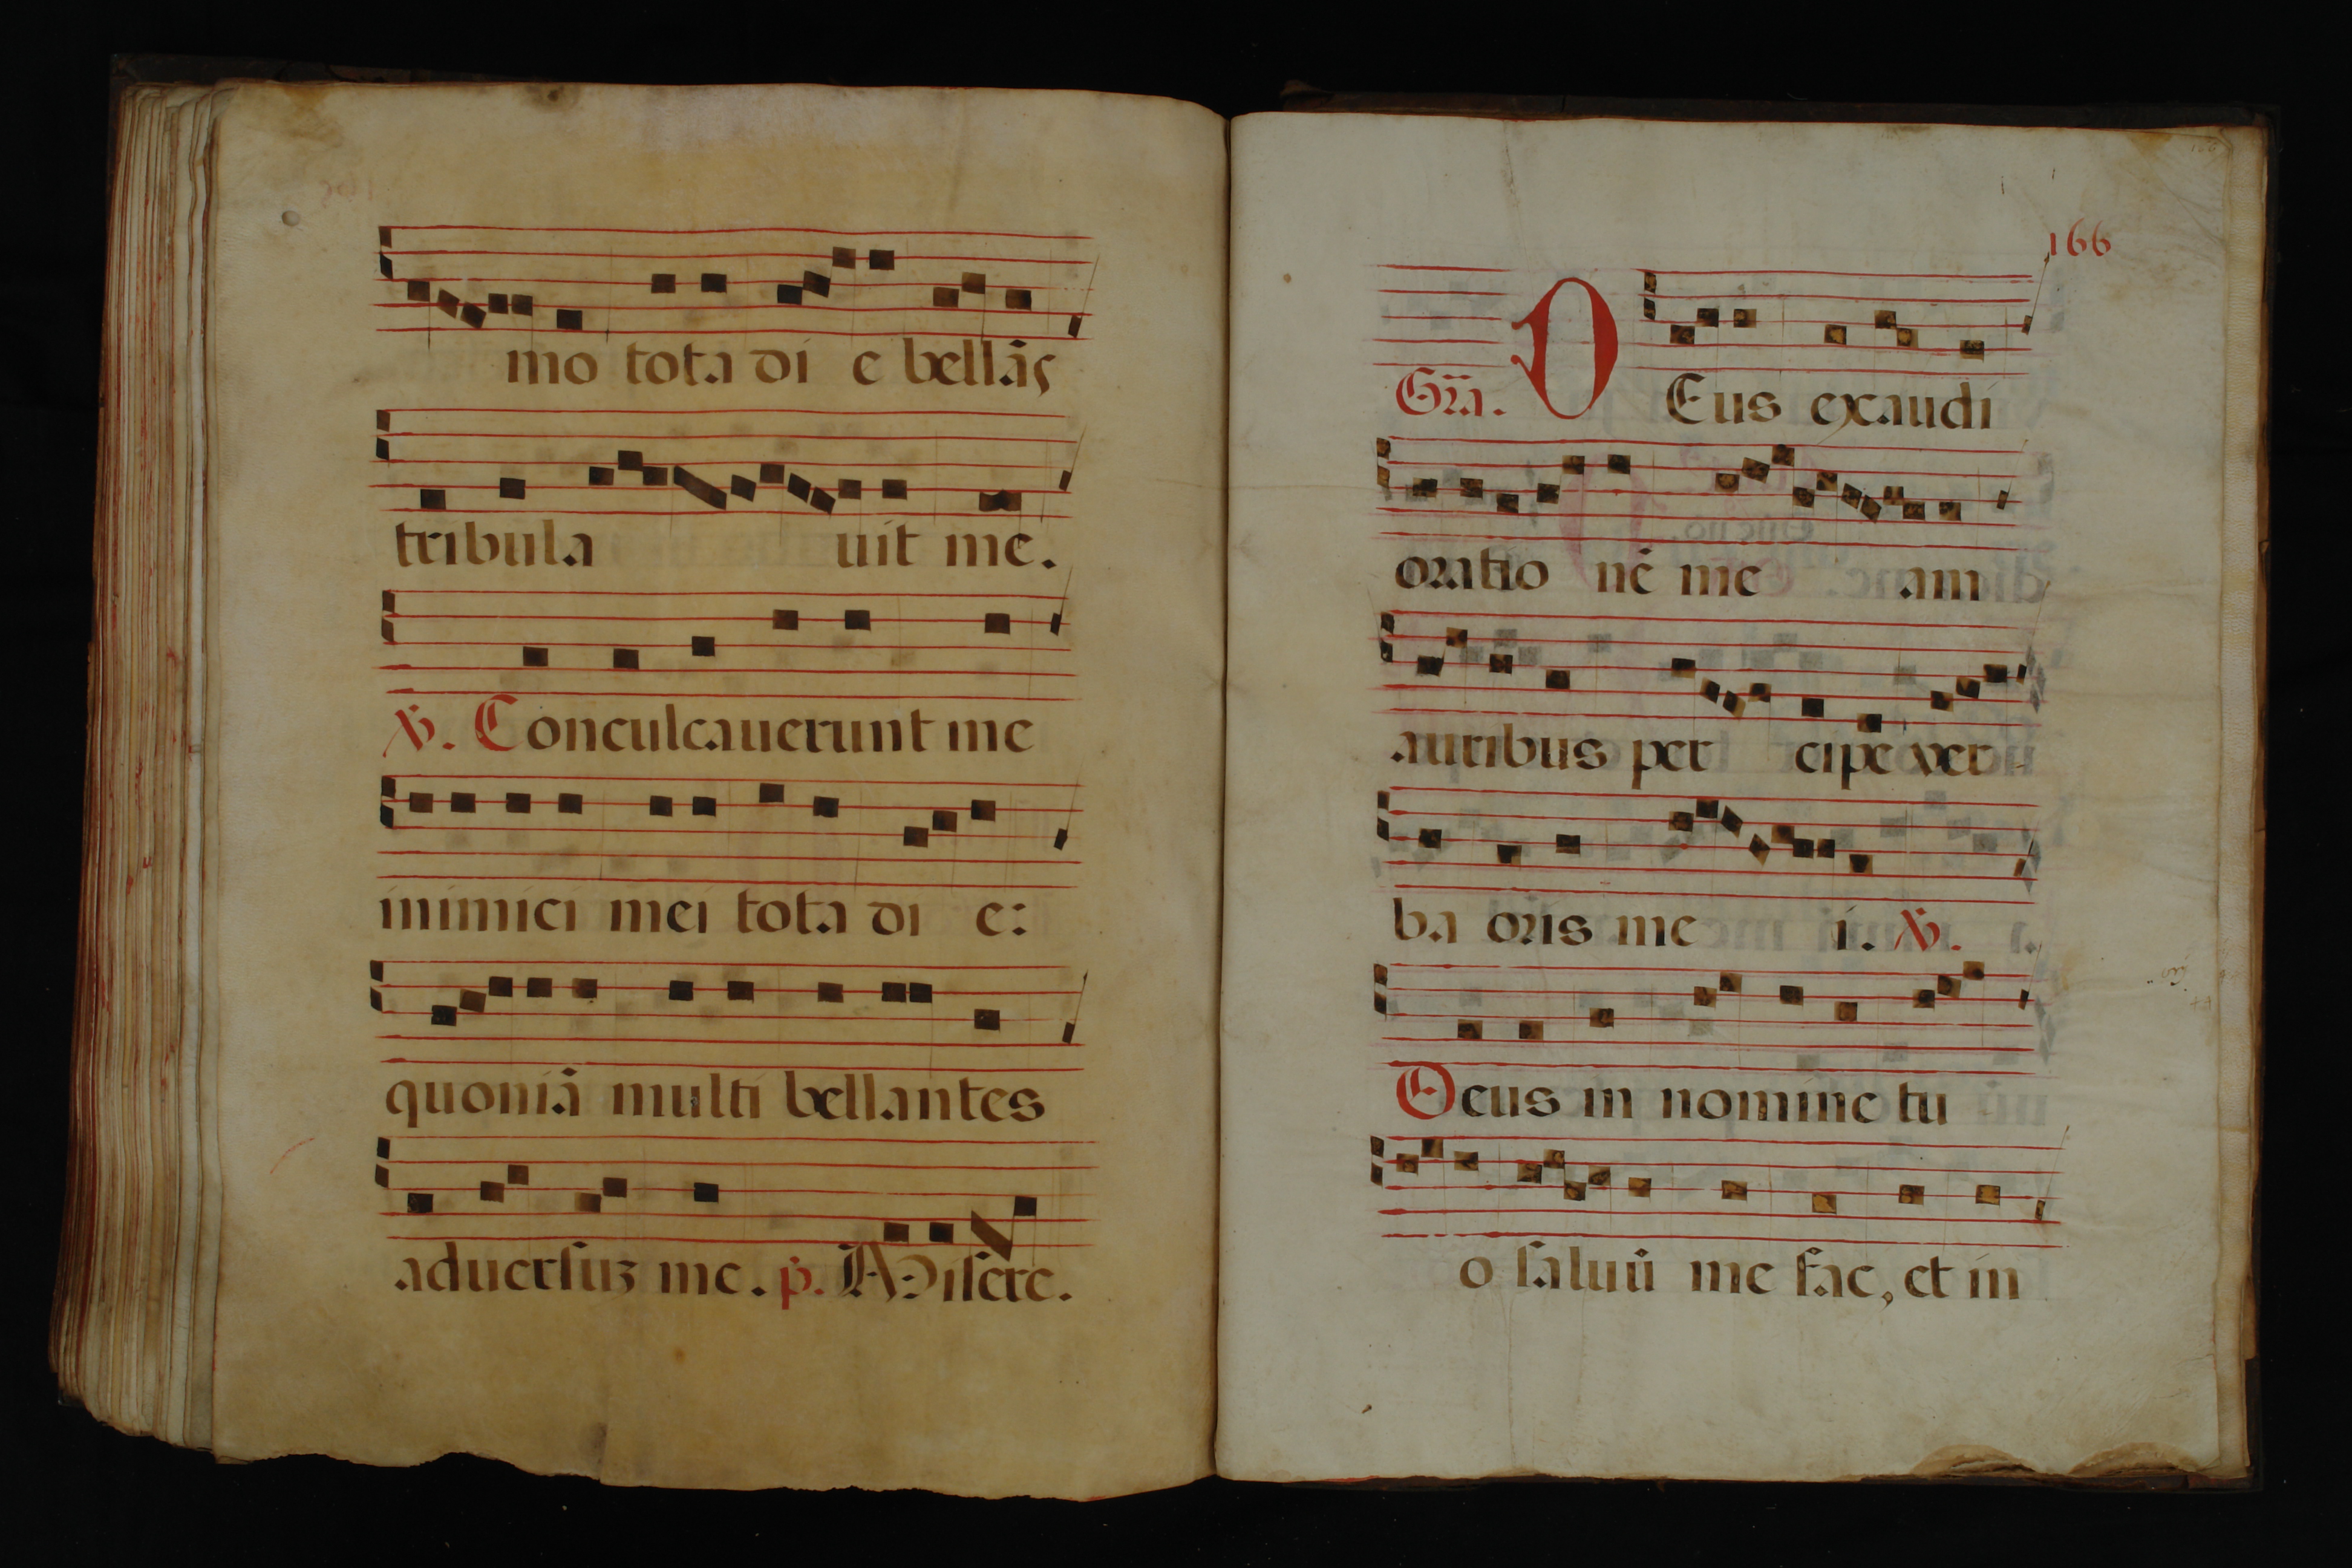 mo tota di e bellãs
tribula uit me.
℣. Conculcauerunt me
inimici mei tota di e:
quoniã multi bellantes
aduersuʒ me. p̃. Misere.
166
Grã. DEus exaudi
oratio nẽ me am
auribus per cipe ver-
ba oris me i. ℣.
Deus in nomine tu
o saluũ me fac, et in